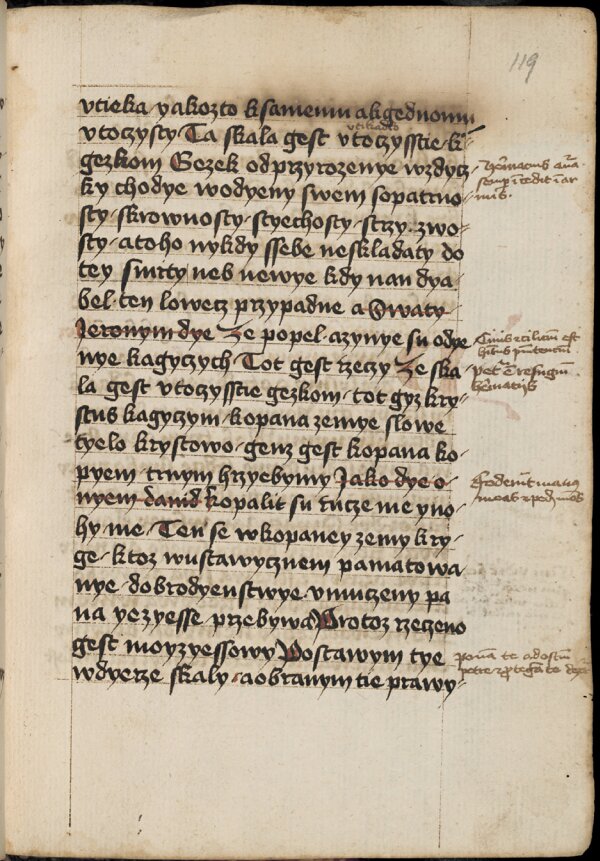 119
vtieka yakozto ksamemu akgednomu
vtoczysty Ta skala gest vtoczysstie k
gezkom Gezek odprzyrozenye wzdycz
ky chodye wodyeny swem sopatrno
sty skrownosty styechosty strzy zwo
sty atoho nykdy ssebe neskladaty do
tey smrty neb newye kdy nan dya
bel ten lowecz przypadne a Swaty
Jeronym dye Ze popel azynye su odye
nye kagyczych Tot gest rzeczy Ze ska
la gest vtoczysstie gezkom tot gyz kry
stus kagyczym kopana zemye slowe
tyelo krystowo genz gest kopana ko
pyem trnym hrzyebymy Jako dye o
nyem dauid kopalit su rucze me y no
hy me Ten se wkopaney zemy kry
ge ktoz wustawycznem pamatowa
nye dobrodyenstwye vmuczeny pa
na yezyesse przebywa Protoz rzeczeno
gest moyzyessowy Postawym tye
wdyerze skaly aobranym tie prawy
semp
Cinis
est
Foderunt manus
meas pedes
te
petre te